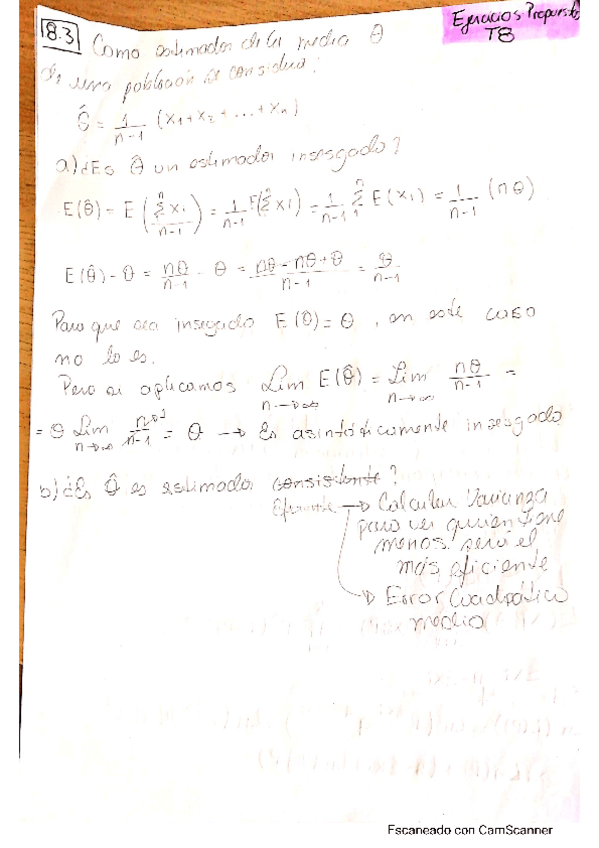 Ejercicios Propuestos
T8
8.3 Como estimador de la media θ
de una población se considera:
θ̂ = 1/(n-1) (x₁+x₂+...+xₙ)
a) ¿Es θ̂ un estimador insesgado?
E(θ̂) = E(Σxi/(n-1)) = 1/(n-1) E(Σxi) = 1/(n-1) Σ E(xi) = 1/(n-1) (nθ)
E(θ̂) - θ = nθ/(n-1) - θ = (nθ-nθ+θ)/(n-1) = θ/(n-1)
Para que sea insegado E(θ̂)=θ, en este caso
no lo es.
Pero si aplicamos Lim n→∞ E(θ̂) = Lim n→∞ nθ/(n-1) =
= θ Lim n→∞ n/(n-1) = θ → Es asintóticamente insesgado
b) ¿Es θ̂ es estimador consistente?
Eficiente → Calcular Varianza
para ver quien tiene
menos será el
más eficiente
→ Error Cuadrático
medio
Escaneado con CamScanner